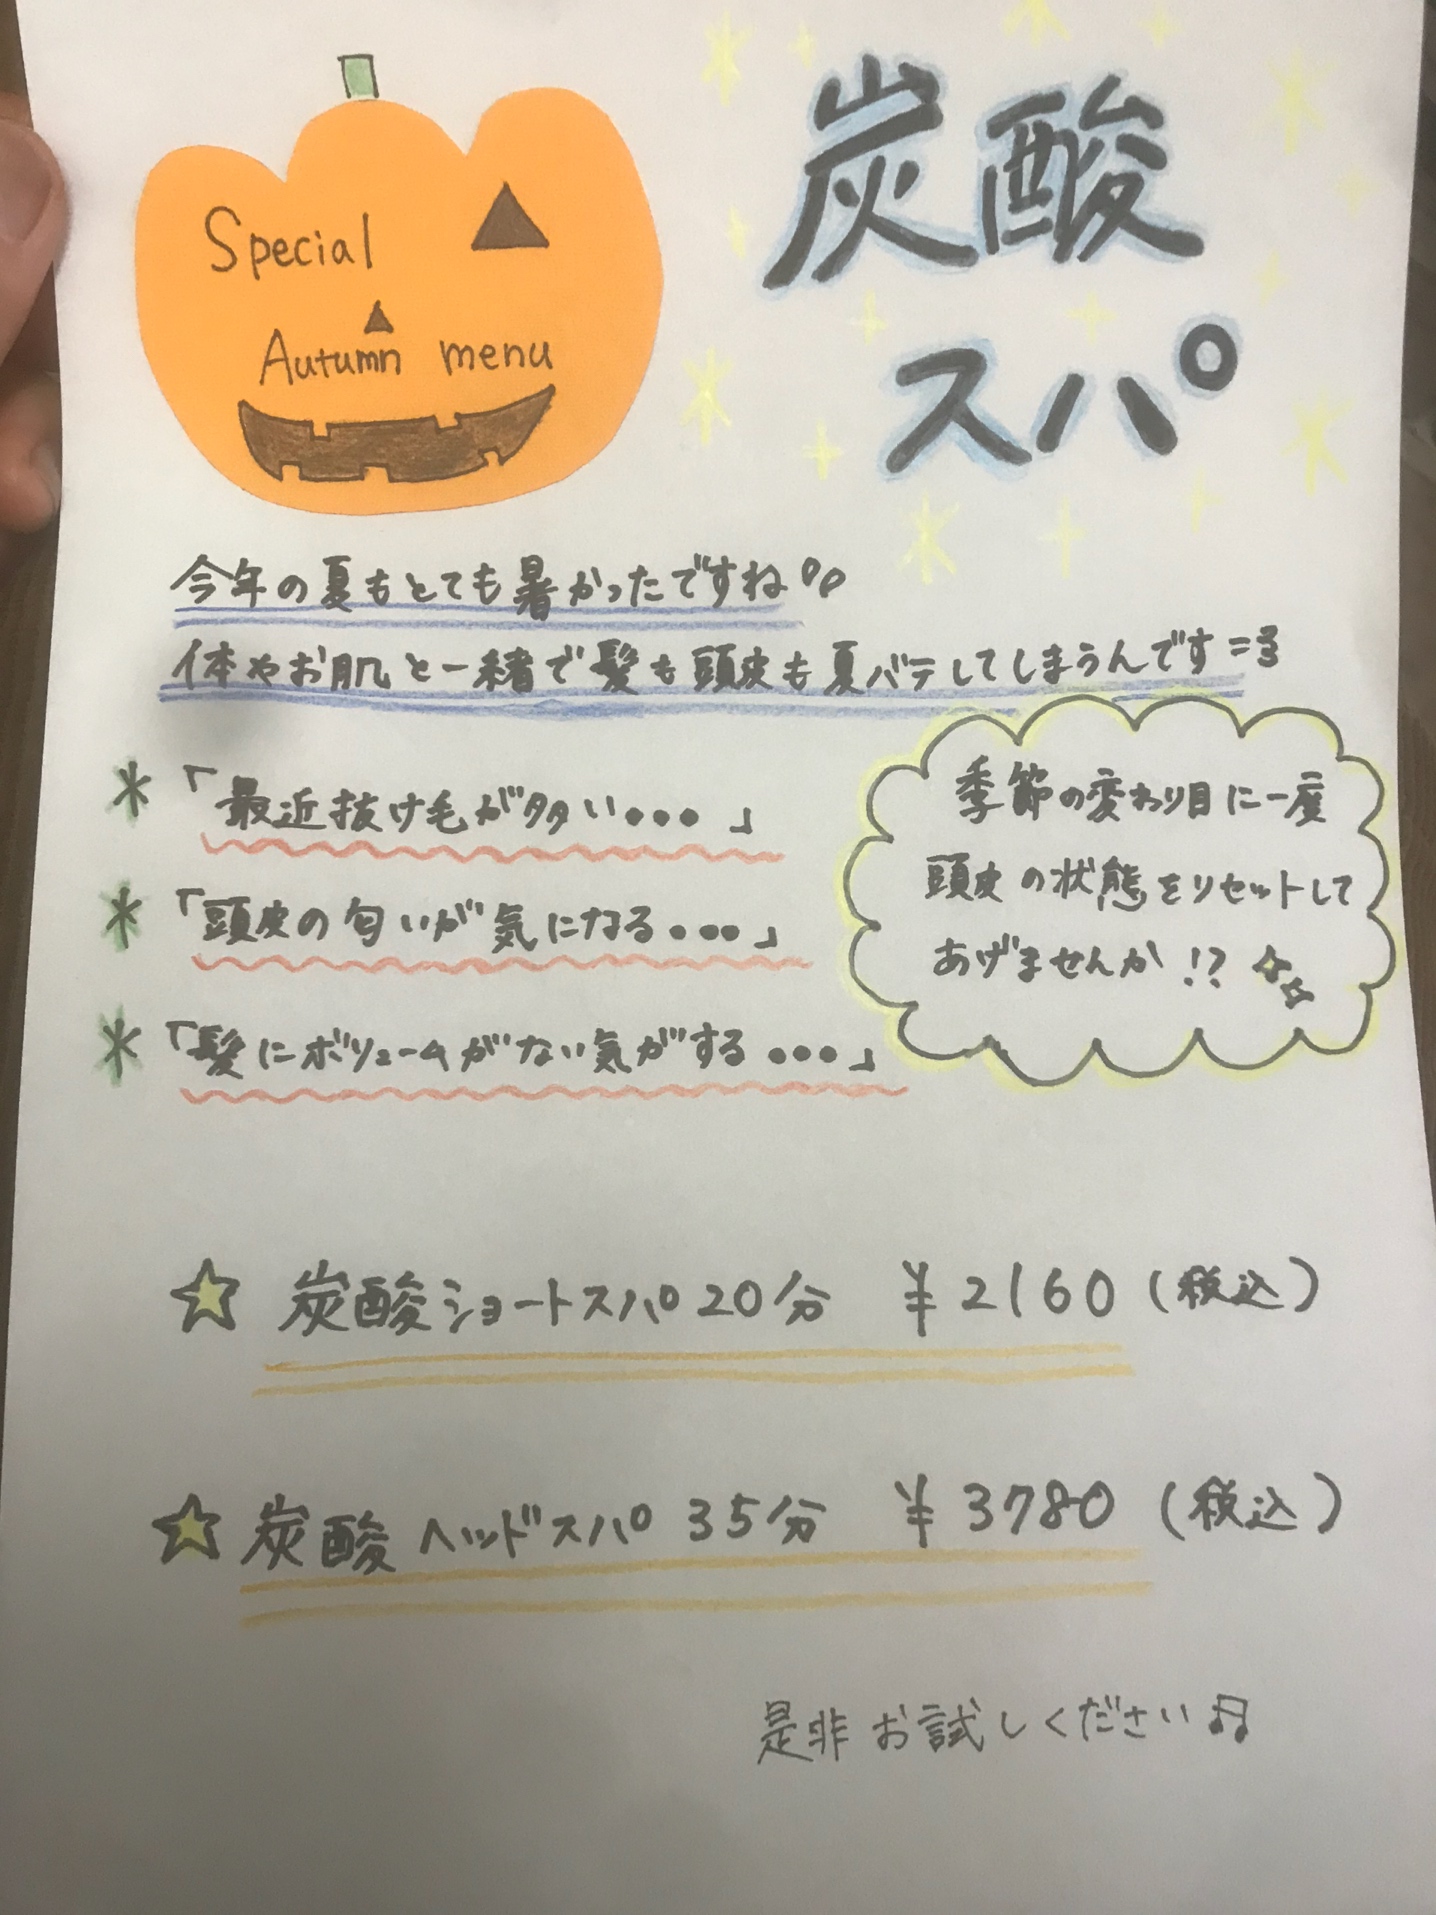 Special
Autumn menu
炭酸
スパ
今年の夏もとても暑かったですね
体やお肌と一緒で髪も頭皮も夏バテしてしまうんです
*「最近抜け毛が多い・・・」
*「頭皮の匂いが気になる・・・」
*「髪にボリュームがない気がする・・・」
季節の変わり目に一度
頭皮の状態をリセットして
あげませんか!?
☆ 炭酸ショートスパ20分 ¥2160(税込)
☆ 炭酸ヘッドスパ 35分 ¥3780(税込)
是非お試しください♫